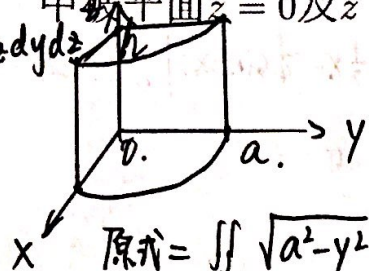 平面z = 0及z
z dydz
h
0.
a.
y
x
原式 = ∬ √a²-y²